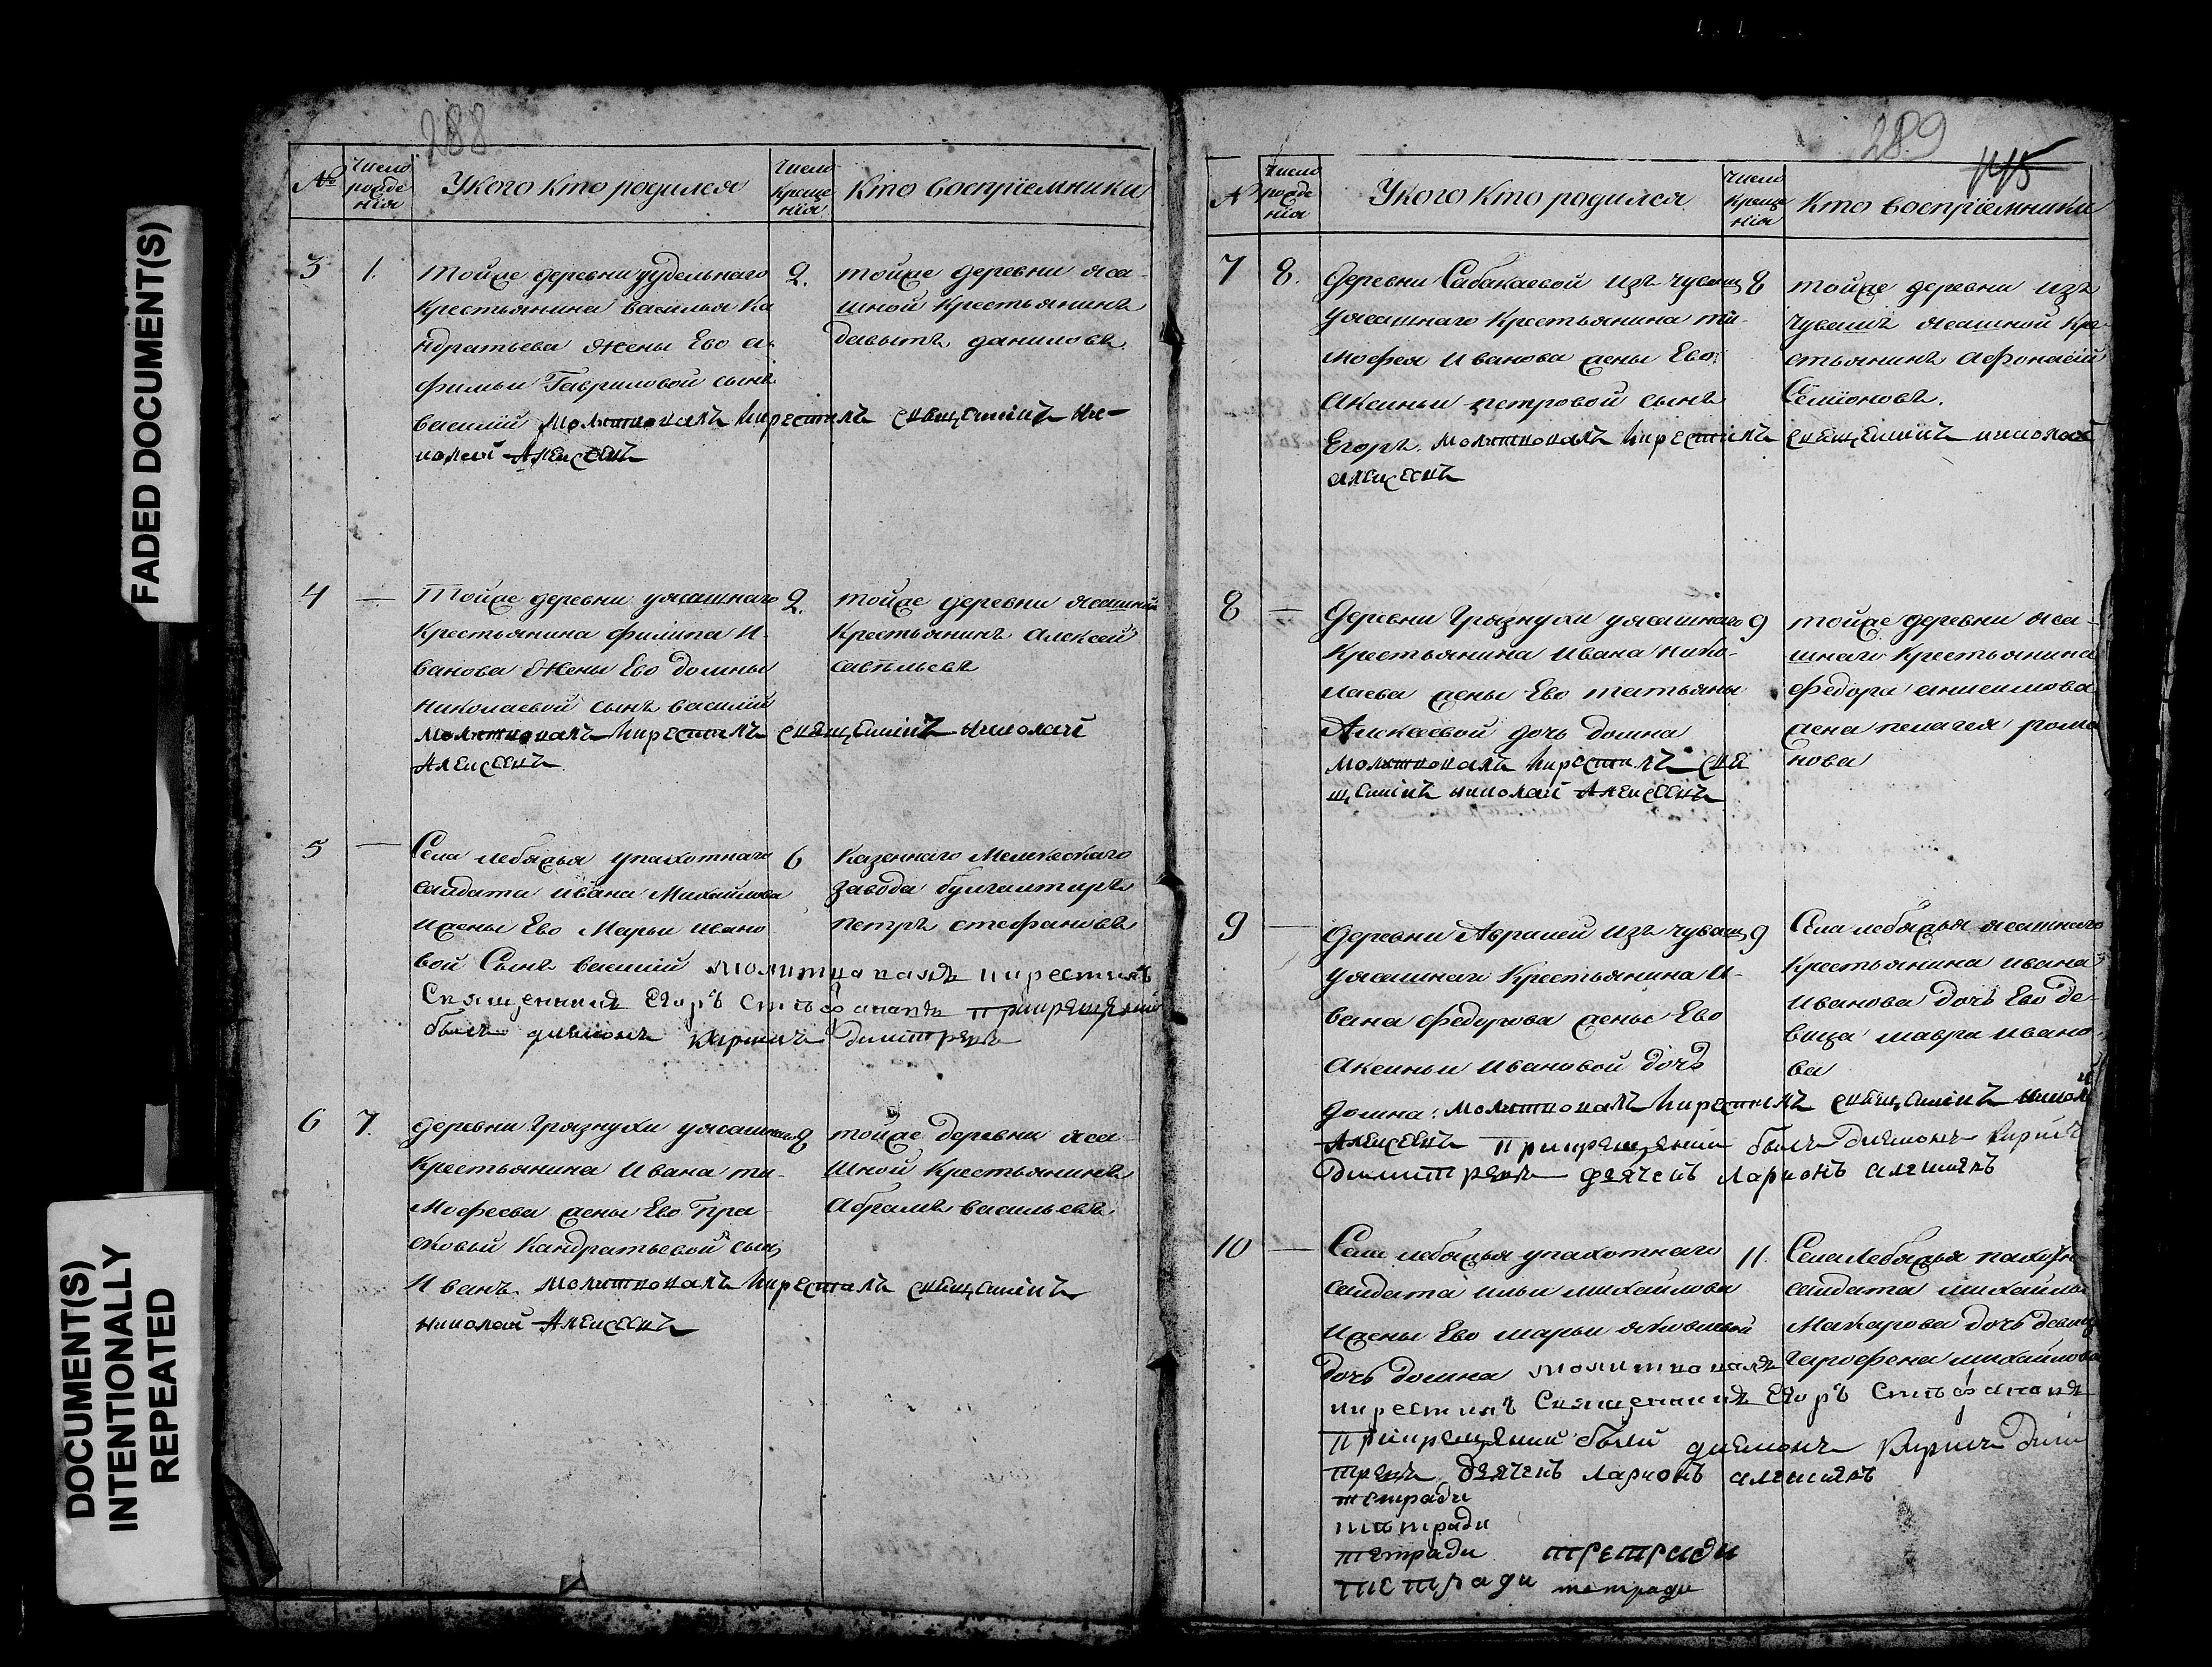 FADED DOCUMENT(S)
DOCUMENT(S)
INTENTIONALLY
REPEATED
288
№
Число рожде нїя
У кого кто родился
Число креще нїя
Кто восприемники
3
1.
тойже деревни удельнаго
Крестьянина василья Ка
ндратьева жены Ево а
фимьи Гавриловой сынъ
василий молитвовалъ и крестилъ священникъ ни-
колай Алексеевъ
2.
тойже деревни яса-
шной Крестьянинъ
давытъ даниловъ
4
—
Тойже деревни уясашнаго
Крестьянина филипа И-
ванова жены Ево домны
Николаевой сынъ василий
молитвовалъ и крестилъ священникъ николай
Алексеевъ
2.
тойже деревни ясашной
Крестьянинъ Алексей
савѣльевъ
5
—
Села лебяжья упахотнаго
салдата ивана Михайлова
ижены Ево Марьи ивано
вой Сынъ василий молитвовалъ и крестилъ
Священникъ Егоръ Стефановъ при крещении
былъ диаконъ кирилъ димитревъ
6
Казеннаго Мелекескаго
завода булгахтиръ
петръ стефановъ
6
7.
деревни Грязнухи уясашнаго
Крестьянина Ивана ти-
мофеева жены Ево Пра-
сковьи Кандратьевой сынъ
Иванъ молитвовалъ и крестилъ священникъ
николай Алексеевъ
8
тойже деревни яса-
шной Крестьянинъ
Абрамъ васильевъ
289
№
Число рожде нїя
У кого кто родился
Число креще нїя
Кто восприемники
7
8.
деревни Сабакаевой изъ чувашъ
уясашнаго Крестьянина ти-
мофея иванова жены Ево
Аксиньи петровой сынъ
Егоръ. молитвовалъ и крестилъ священникъ николай
алексеевъ
8
тойже деревни изъ
чувашъ ясашной кре-
стьянинъ Афонасий
Семионовъ.
8
—
деревни Грязнухи уясашнаго
Крестьянина ивана нико-
лаева жены Ево татьяны
Алексеевой дочь домна
молитвовалъ и крестилъ свя
щенникъ николай Алексеевъ
9
тойже деревни яса-
шнаго Крестьянина
федора анисимова
жена пелагея рома
нова
9
—
деревни Авралей изъ чувашъ
уясашнаго Крестьянина И-
вана федорова жены Ево
Аксиньи ивановой дочь
домна: молитвовалъ и крестилъ священникъ николай
Алексеевъ при крещении былъ диаконъ кирилъ
димитревъ дьячекъ Ларионъ алексиевъ
9
Села лебяжья ясашнаго
Крестьянина ивана
иванова дочь Ево де-
вица мавра ивано-
ва
10
—
Села лебяжья упахотнаго
салдата ильи михайлова
ижены Ево марьи яковлевой
дочь домна молитвовалъ
и крестилъ Священникъ Егоръ Стефановъ
при крещении были диаконъ Кирилъ дими
тревъ дьячекъ ларионъ алексиевъ
11.
Села Лебяжья пахотн
салдата михайла
Макарова дочь девица
михайлова
тетради
тетради
тетради
тетради
тетради